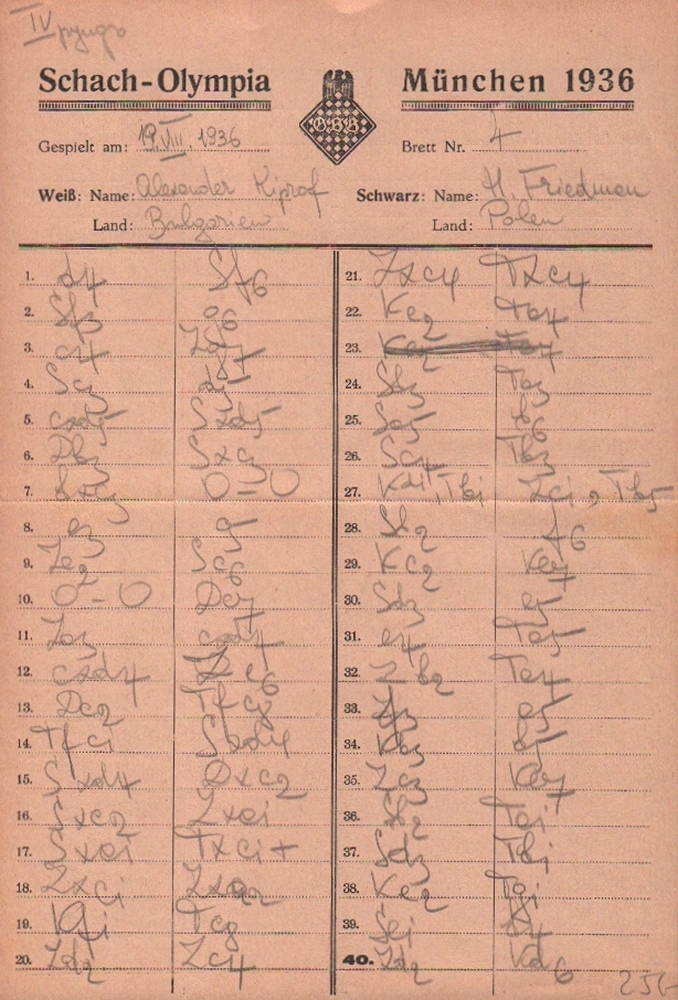 IV рунда
Schach-Olympia München 1936
Gespielt am: 19.VIII.1936 Brett Nr. 4
Weiß: Name: Alexander Kiprof Schwarz: Name: H. Friedman
Land: Bulgarien Land: Polen
1. d4 Sf6 21. Lxc4 Txc4
2. Sf3 g6 22. Ke2 Ta4
3. c4 Lg7 23.
4. Sc3 d5 24. Sb3 Ta3
5. cxd5 Sxd5 25. Sa5 b6
6. Db3 Sxc3 26. Sc4 Tb3
7. bxc3 0-0 27. Kd1, Tb1
8. e3 c5 28. f6
9. Le2 Sc6 29. Kc2 Kf7
10. 0-0 Dc7 30. Sd3 e5
11. La3 cxd4 31. e4 Ta5
12. cxd4 Le6 32. Lb2 Ta4
13. Db2 33.
14. Tfc1 Sxd4 34. Kb3 b5
15. Sxd4 Dxc2 35. Lc3 Ke7
16. Sxc2 Lxa1 36. Sb2 Ta1
17. Sxa1 Txc1+ 37. Sd3 Tb1
18. Lxc1 Lxa2 38. Kc2 Tg1
19. Kf1 Tc8 39. Se1
20. Ld2 Lc4 40. Kd6